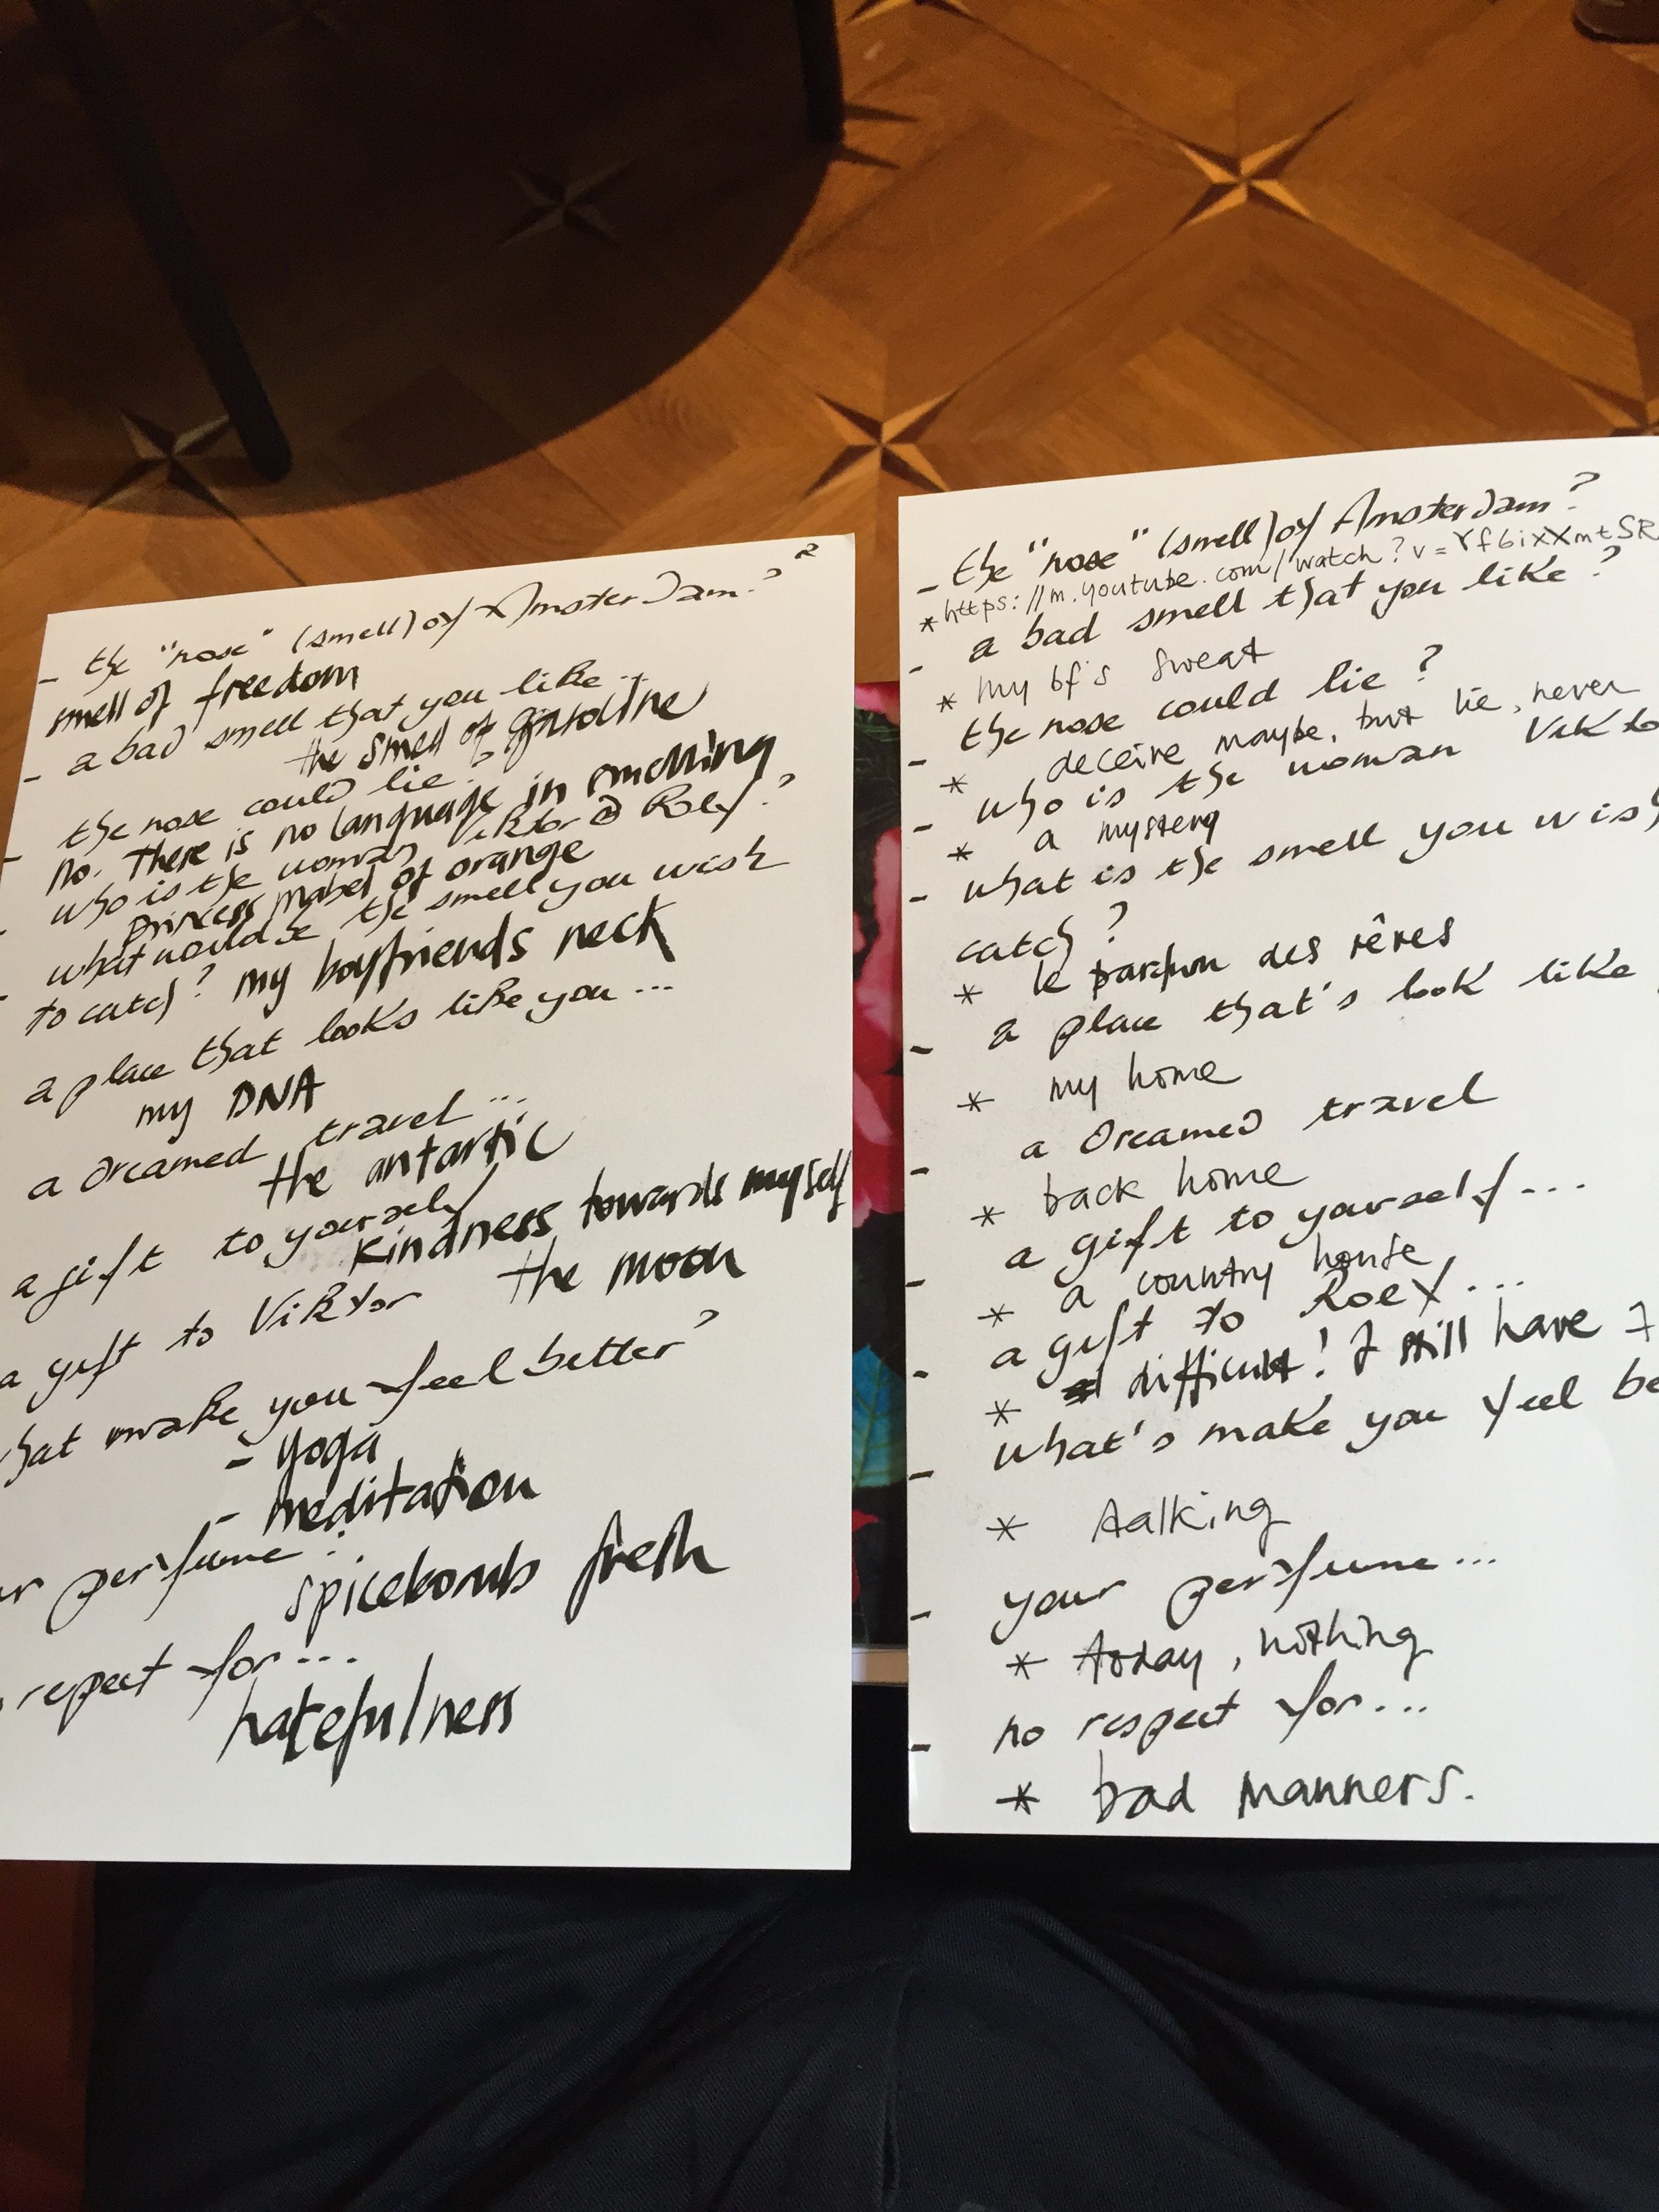 - the "nose" (smell) of Amsterdam?
smell of freedom
- a bad smell that you like...
the smell of gasoline
- the nose could lie?
no. There is no language in smelling
- who is the woman Viktor & Rolf?
princess mabel of orange
- what would be the smell you wish
to catch? my boyfriends neck
a place that looks like you...
my DNA
a dreamed travel...
the antartic
a gift to yourself
kindness towards myself
a gift to Viktor the moon
what make you feel better?
- yoga
- meditation
perfume
spicebomb fresh
respect for...
hatefulness
- the "nose" (smell) of Amsterdam?
* https://m.youtube.com/watch?v=Yf6ixXmtSR
- a bad smell that you like?
* my bf's sweat
- the nose could lie?
* deceive maybe, but lie, never
- who is the woman Vikto
* a mystery
- what is the smell you wish
catch?
* le parfum des rêves
- a place that's look like
* my home
- a dreamed travel
* back home
- a gift to yourself...
* a country house
- a gift to Rolf...
* difficult! I still have
- what's make you feel be
* talking
- your perfume...
* today, nothing
- no respect for...
* bad manners.